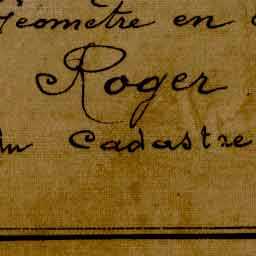 Géomètre en
Roger
du Cadastre